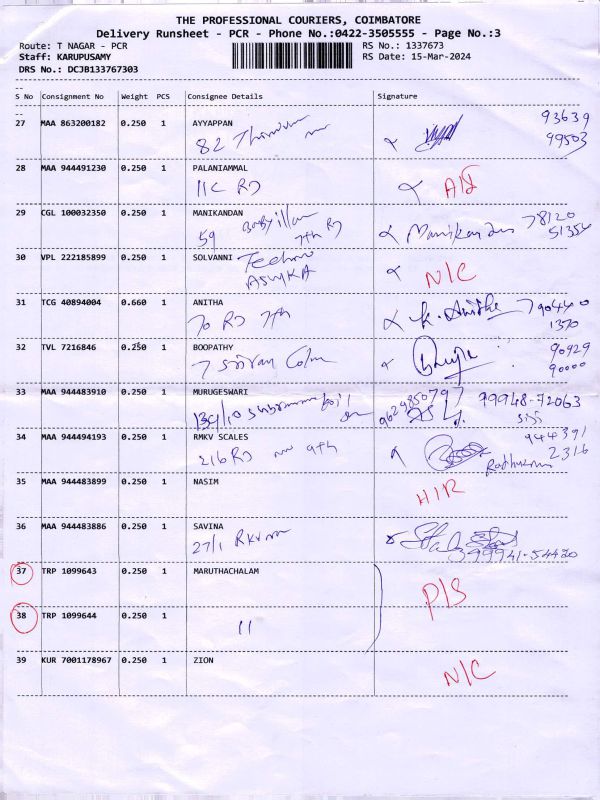 THE PROFESSIONAL COURIERS, COIMBATORE
Delivery Runsheet - PCR - Phone No.:0422-3505555 - Page No.:3
Route: T NAGAR - PCR RS No.: 1337673
Staff: KARUPUSAMY RS Date: 15-Mar-2024
DRS No.: DCJB133767303
S No Consignment No Weight PCS Consignee Details Signature
27 MAA 863200182 0.250 1 AYYAPPAN 93639
82 99503
28 MAA 944491230 0.250 1 PALANIAMMAL
11C RD
29 CGL 100032350 0.250 1 MANIKANDAN 78120
59 7th RD Manikandan 51354
30 VPL 222185899 0.250 1 SOLVANNI Techno
ASWKA N/C
31 TCG 40894004 0.660 1 ANITHA K. Anitha 790440
70 RD 7th 1370
32 TVL 7216846 0.250 1 BOOPATHY 90929
7 Colm 90000
33 MAA 944483910 0.250 1 MURUGESWARI 9629850797 99948-72063
139/10
34 MAA 944494193 0.250 1 RMKV SCALES 944391
216 RD 9th 2316
35 MAA 944483899 0.250 1 NASIM
HIR
36 MAA 944483886 0.250 1 SAVINA
27/1 99941-54420
37 TRP 1099643 0.250 1 MARUTHACHALAM
P/S
38 TRP 1099644 0.250 1
11
39 KUR 7001178967 0.250 1 ZION
N/C